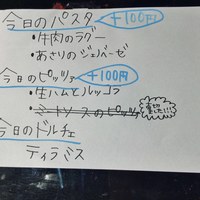 今日のパスタ +100円
・牛肉のラグー
・あさりのジェノベーゼ
今日のピッツァ +100円
・生ハムとルッコラ
・ミートソースのピッツァ 売切ました!!!
今日のドルチェ
ティラミス